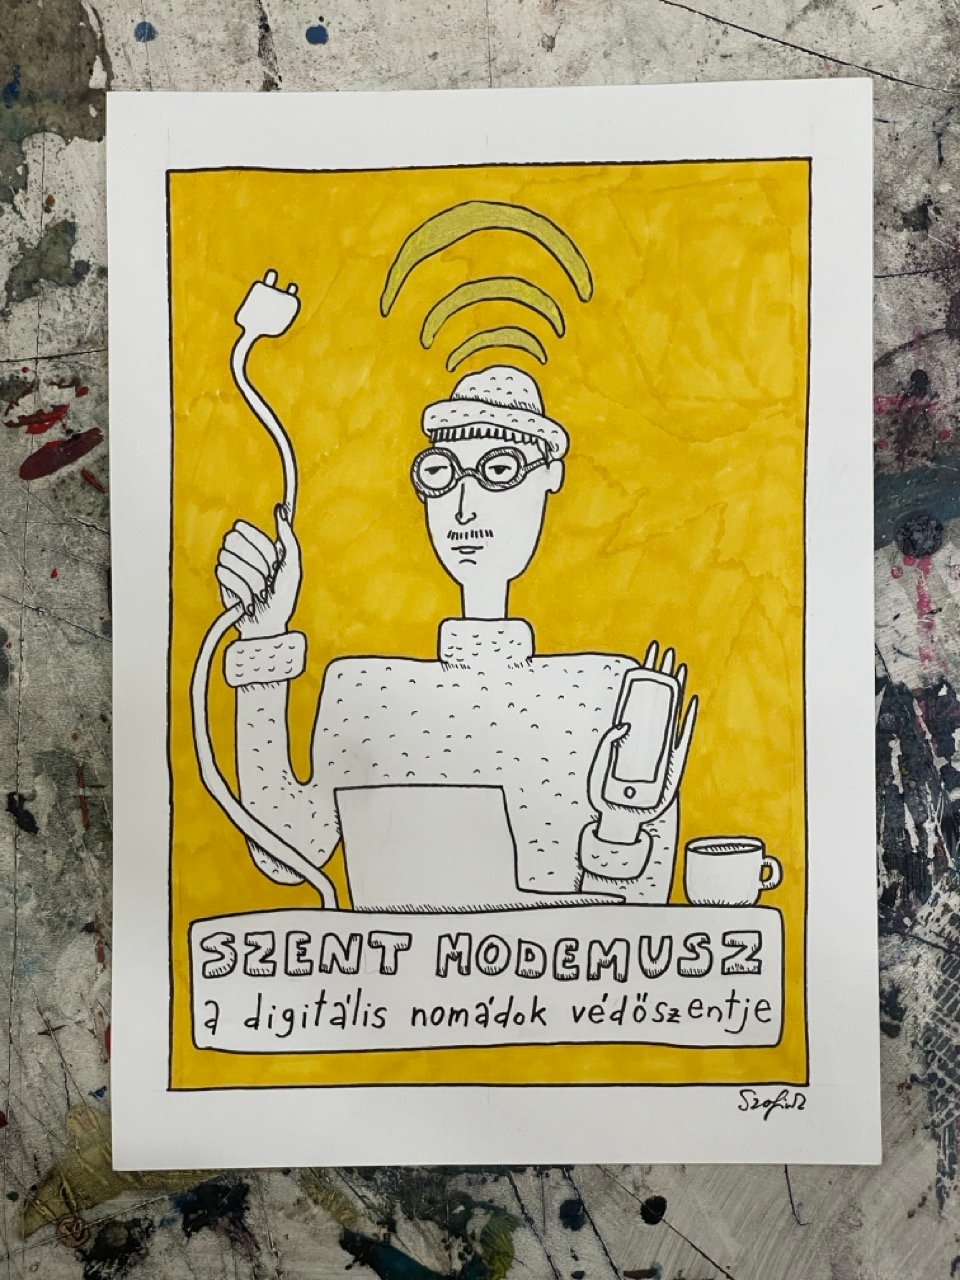 SZENT MODEMUSZ
a digitális nomádok védőszentje